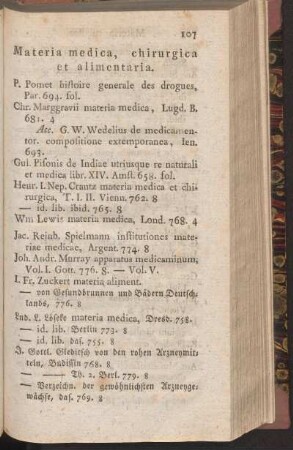 107
Materia medica, chirurgica
et alimentaria.
P. Pomet histoire generale des drogues,
Par. 694. fol.
Chr. Marggravii materia medica, Lugd. B.
681. 4
Acc. G. W. Wedelius de medicamen-
tor. compositione extemporanea, Ien.
693.
Gul. Pisonis de Indiae utriusque re naturali
et medica libr. XIV. Amst. 658. fol.
Henr. I. Nep. Crantz materia medica et chi-
rurgica, T. I. II. Vienn. 762. 8
— id. lib. ibid. 765. 8
Wm Lewis materia medica, Lond. 768. 4
Jac. Reinb. Spielmann institutiones mate-
riae medicae, Argent. 774. 8
Joh. Andr. Murray apparatus medicaminum,
Vol. I. Gott. 776. 8. — Vol. V.
I. Fr. Zuckert materia aliment.
— von Gesundbrunnen und Bädern Deutsch-
lands, 776. 8
Lud. L. Löseke materia medica, Dresd. 758.
— id. lib. Berlin 773. 8
— id. lib. das. 755. 8
J. Gottl. Gleditsch von den rohen Arzneymit-
teln, Budissin 768. 8
— — Th. 2. Berl. 779. 8
— Verzeichn. der gewöhnlichsten Arzneyge-
wächse, das. 769. 8